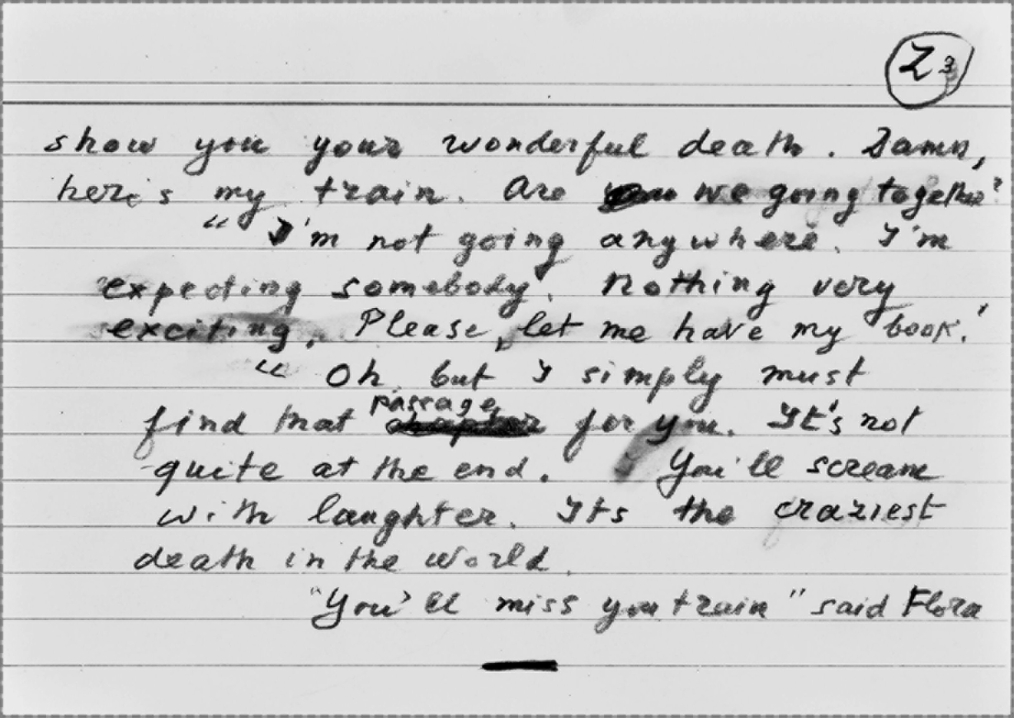 Z 3
show you your wonderful death. Damn,
here's my train. Are we going together?
"I'm not going anywhere. I'm
expecting somebody. Nothing very
exciting. Please, let me have my book."
"Oh, but I simply must
find that passage for you. It's not
quite at the end. You'll scream
with laughter. Its the craziest
death in the world.
"You'll miss you train" said Flora